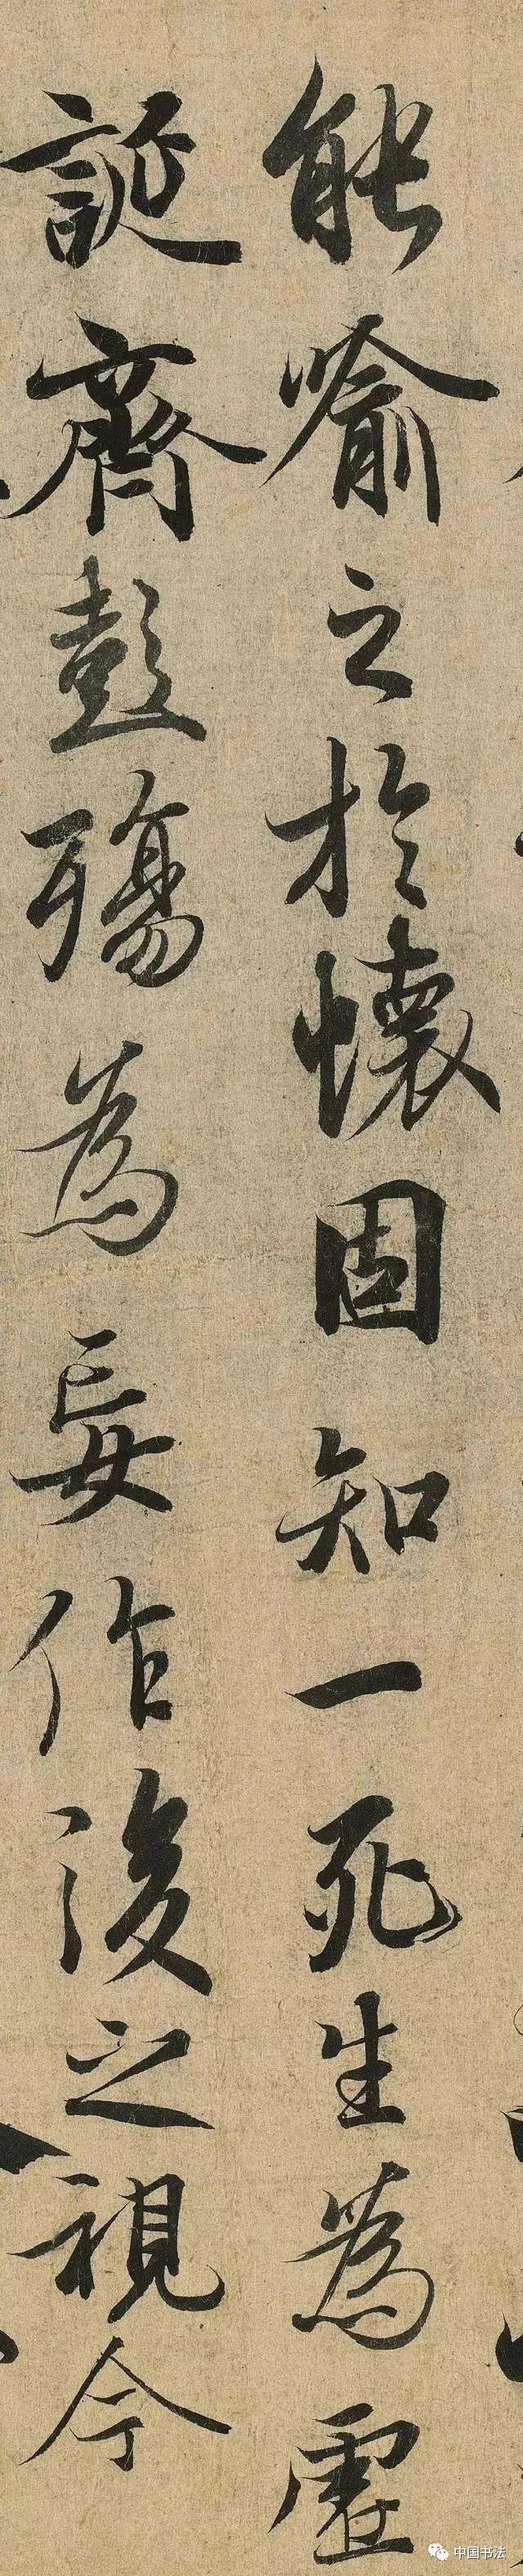 能喻之於懷固知一死生為虛
誕齊彭殤為妄作後之視今
中国书法